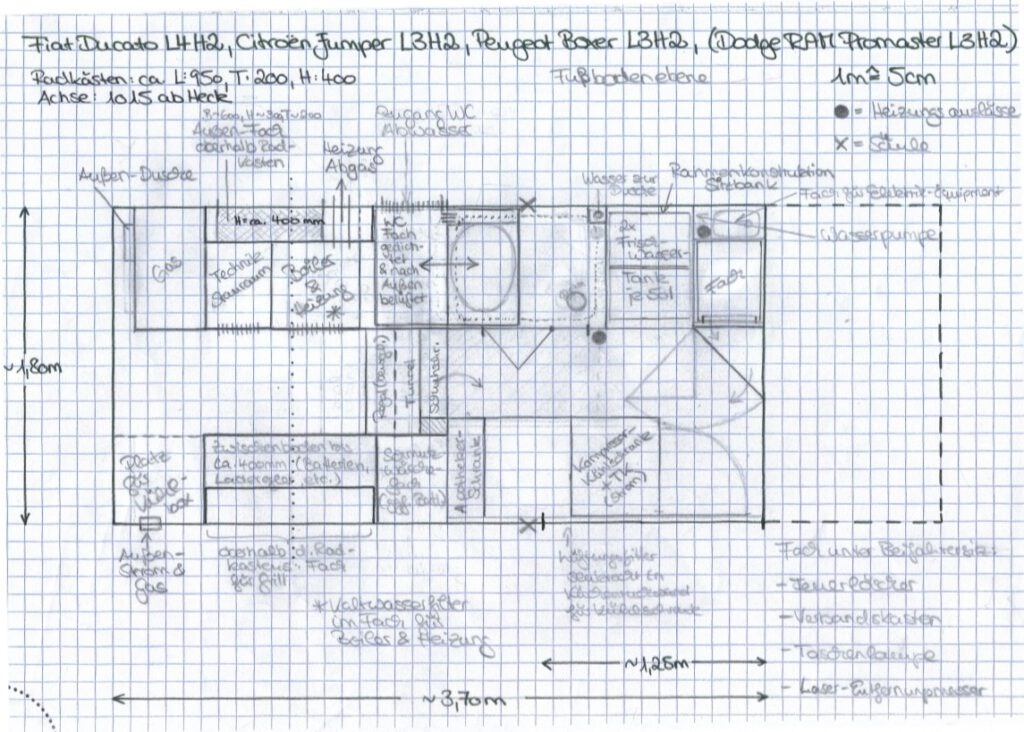 Fiat Ducato L4H2, Citroën Jumper L3H2, Peugeot Boxer L3H2, (Dodge RAM Promaster L3H2)
Radkästen: ca. L:950, T:200, H:400
Achse: 1015 ab Heck
Fußbodenebene
1m ≙ 5cm
● = Heizungsauslässe
X = Säule
Außen-Fach
oberhalb Rad-
kasten
Zugang WC
Abwasser
Heizung
Abgas
Außen-Dusche
Wasser zur
Dusche
Rahmenkonstruktion
Sitzbank
Fach für Elektrik-Equipment
Wasserpumpe
H=ca. 400mm
Gas
Technik
Stauraum
Boiler
&
Heizung
*
WC
Fach
gedich-
tet
& nach
Außen
belüftet
2x
Frisch-
Wasser-
Tank
je 50l
Fach
~1,80m
Tunnel
Platz
für
Zwischenboden bis
ca. 400mm (Batterien,
Ladegerät etc.)
Schmutz-
wäsche-
fach
Apotheker-
Schrank
Kompressor-
Kühlschrank
+ TK
(Strom)
Außen-
Strom &
Gas
oberhalb d. Rad-
kastens: Fach
für Grill
* Kaltwasserfilter
im Fach für
Boiler & Heizung
für Kühlschrank
Fach unter Beifahrersitz:
- Feuerlöscher
- Verbandskasten
- Taschenlampe
- Laser-Entfernungsmesser
~1,25m
~3,70m